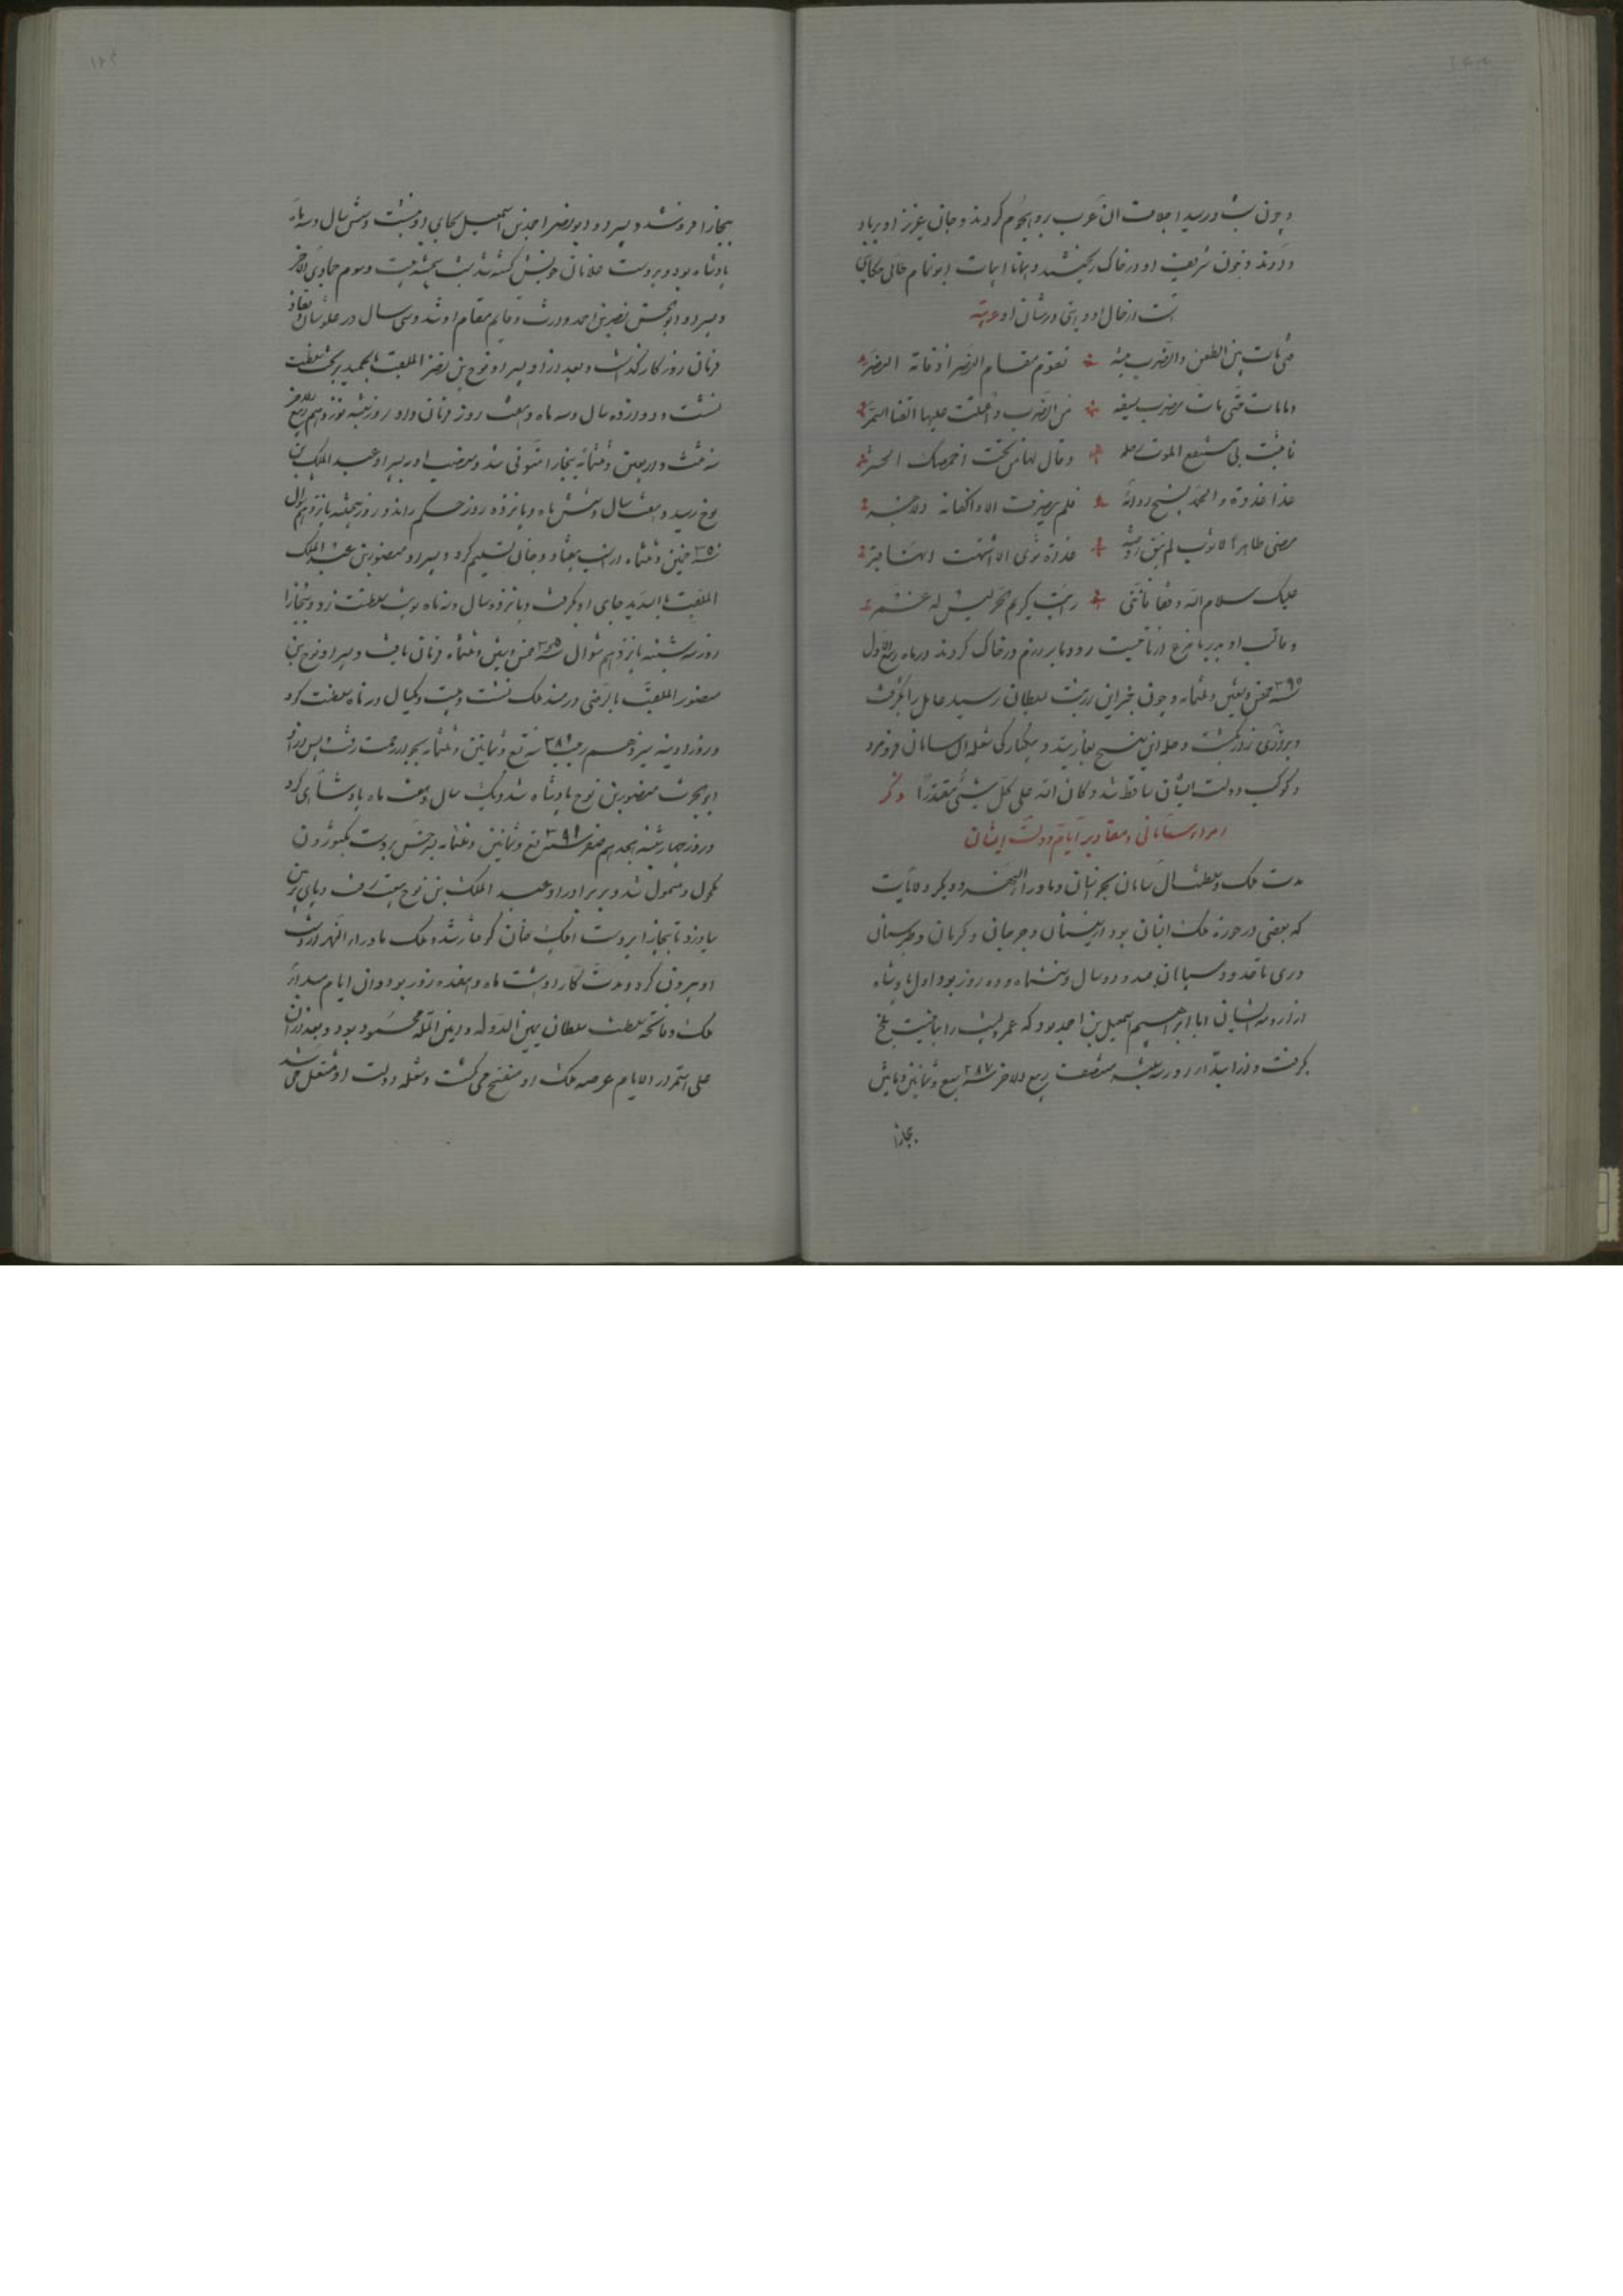 و چون شب در رسید اجلاف آن عرب برو هجوم کردند و جان عزیز او بباد
دادند و خون شریف او در خاک ریختند و همانا ابیات ابو تمام طائی حکایتی
است از حال او و مرثیتی در شان او عربیه
فتی مات بین الطعن والضرب میتة تقوم مقام النصر اذ فاته النصر
وما مات حتی مات مضرب سیفه من الضرب واعتلت علیه القنا السمر
فاثبت فی مستنقع الموت رجله وقال لها من تحت اخمصک الحشر
غدا غدوة والحمد نسج ردائه فلم ینصرف الا واکفانه الاجر
مضی طاهر الاثواب لم تبق روضة غداة ثوی الا اشتهت انها قبر
علیک سلام الله وقفا فاننی رایت الکریم الحر لیس له عمر
و قالب او بدیه مرغ از ناحیت رودبار زم در خاک کردند در ماه ربیع الاول
سنه ۳۹۵ خمس وتسعین وثلثمائه و چون خبر این رزیت بسلطان رسید عامل را بگرفت
و کوکب دولت ایشان ساقط شد وکان الله علی کل شیء مقتدرا ذکر
امراء سامانی و مقادیر ایام دولت ایشان
مدت ملک و سلطنت آل سامان بخراسان و ماوراء النهر و دیگر ولایات
که بعضی در حوزه ملک ایشان بود از سیستان و جرجان و کرمان و طبرستان
و ری تا حدود سپاهان صد و دو سال و شش ماه و ده روز بود اول پادشاه
از ارومه ایشان ابا ابراهیم اسمعیل بن احمد بود که عمرو لیث را بناحیت بلخ
بگرفت و در روز سه شنبه منتصف ربیع الاخر سنه ۲۸۷ سبع وثمانین ومایتین
بخارا
بخارا فرو شد و پسر او ابو نصر احمد بن اسمعیل بجای او نشست و شش سال و سه ماه
پادشاه بود و بر دست غلامان خویش کشته شد شب پنجشنبه بیست و سوم جمادی الاخر
و پسر او ابو الحسن نصر بن احمد وارث و قایم مقام او شد و سی سال در علو شان و نفاذ
فرمان روزگار گذاشت و بعد از او پسر او نوح بن نصر الملقب بالحمید بر تخت سلطنت
نشست و دوازده سال و سه ماه و هفت روز فرمان داد و روز شنبه نوزدهم ربیع الاخر
سنه ثلث واربعین وثلثمائه ببخارا متوفی شد و منصب او به پسر او عبد الملک بن
نوح رسید و هفت سال و شش ماه و یازده روز حکم راند و روز پنجشنبه یازدهم شوال
سنه ۳۵۰ خمسین وثلثمائه از اسب بیفتاد و جان تسلیم کرد و برادر او منصور بن عبد الملک
الملقب بالسدید جای او بگرفت و پانزده سال و نه ماه نوبت سلطنت زد و ببخارا
روز سه شنبه یازدهم شوال سنه ۳۶۵ خمس وستین وثلثمائه فرمان یافت و پسر او نوح بن
منصور الملقب بالرضی در مسند ملک نشست و بیست و یکسال و نه ماه سلطنت کرد
و روز ادینه سیزدهم رجب سنه سبع وثمانین وثلثمائه بجوار رحمت رفت پس از او
ابو الحرث منصور بن نوح پادشاه شد و یک سال و هفت ماه پادشاهی کرد
و روز چهارشنبه هجدهم صفر سنه تسع وثمانین وثلثمائه بسرخس بر دست بکتوزون
مکحول و مسمول شد و بر برادر او عبد الملک بن نوح بیعت رفت
تا ببخارا بر دست ایلک خان گرفتار شد و ملک ماوراء النهر از دست
او بیرون کرد و مدت کار او هشت ماه و هفده روز بود و ان ایام مبداء
ملک و فاتحه سلطنت سلطان یمین الدوله و امین المله محمود بود و بعد از ان
علی استمرار الایام عرصه ملک او منفسح می گشت و شعله دولت او مشتعل می شد